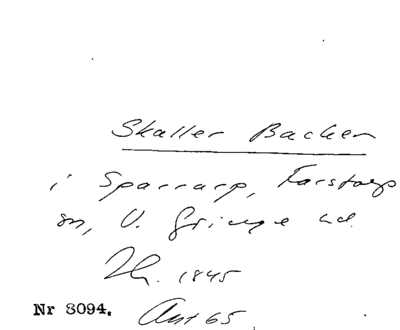 Skaller Backen
i Sparrarp, Farstorp
sn, V. Göinge hd.
1845
Nr 8094. Ant 65